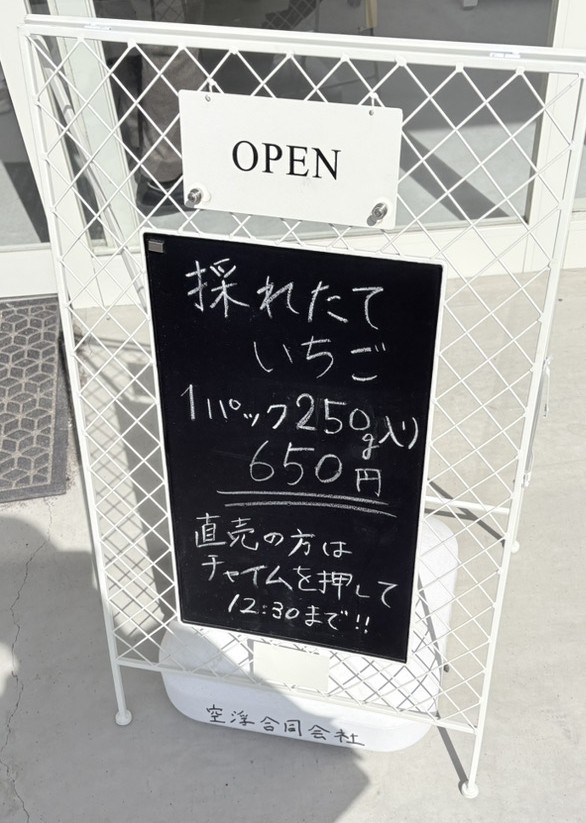 OPEN
採れたて
いちご
1パック250g入り
650円
直売の方は
チャイムを押して
12:30まで!!
空浮合同会社